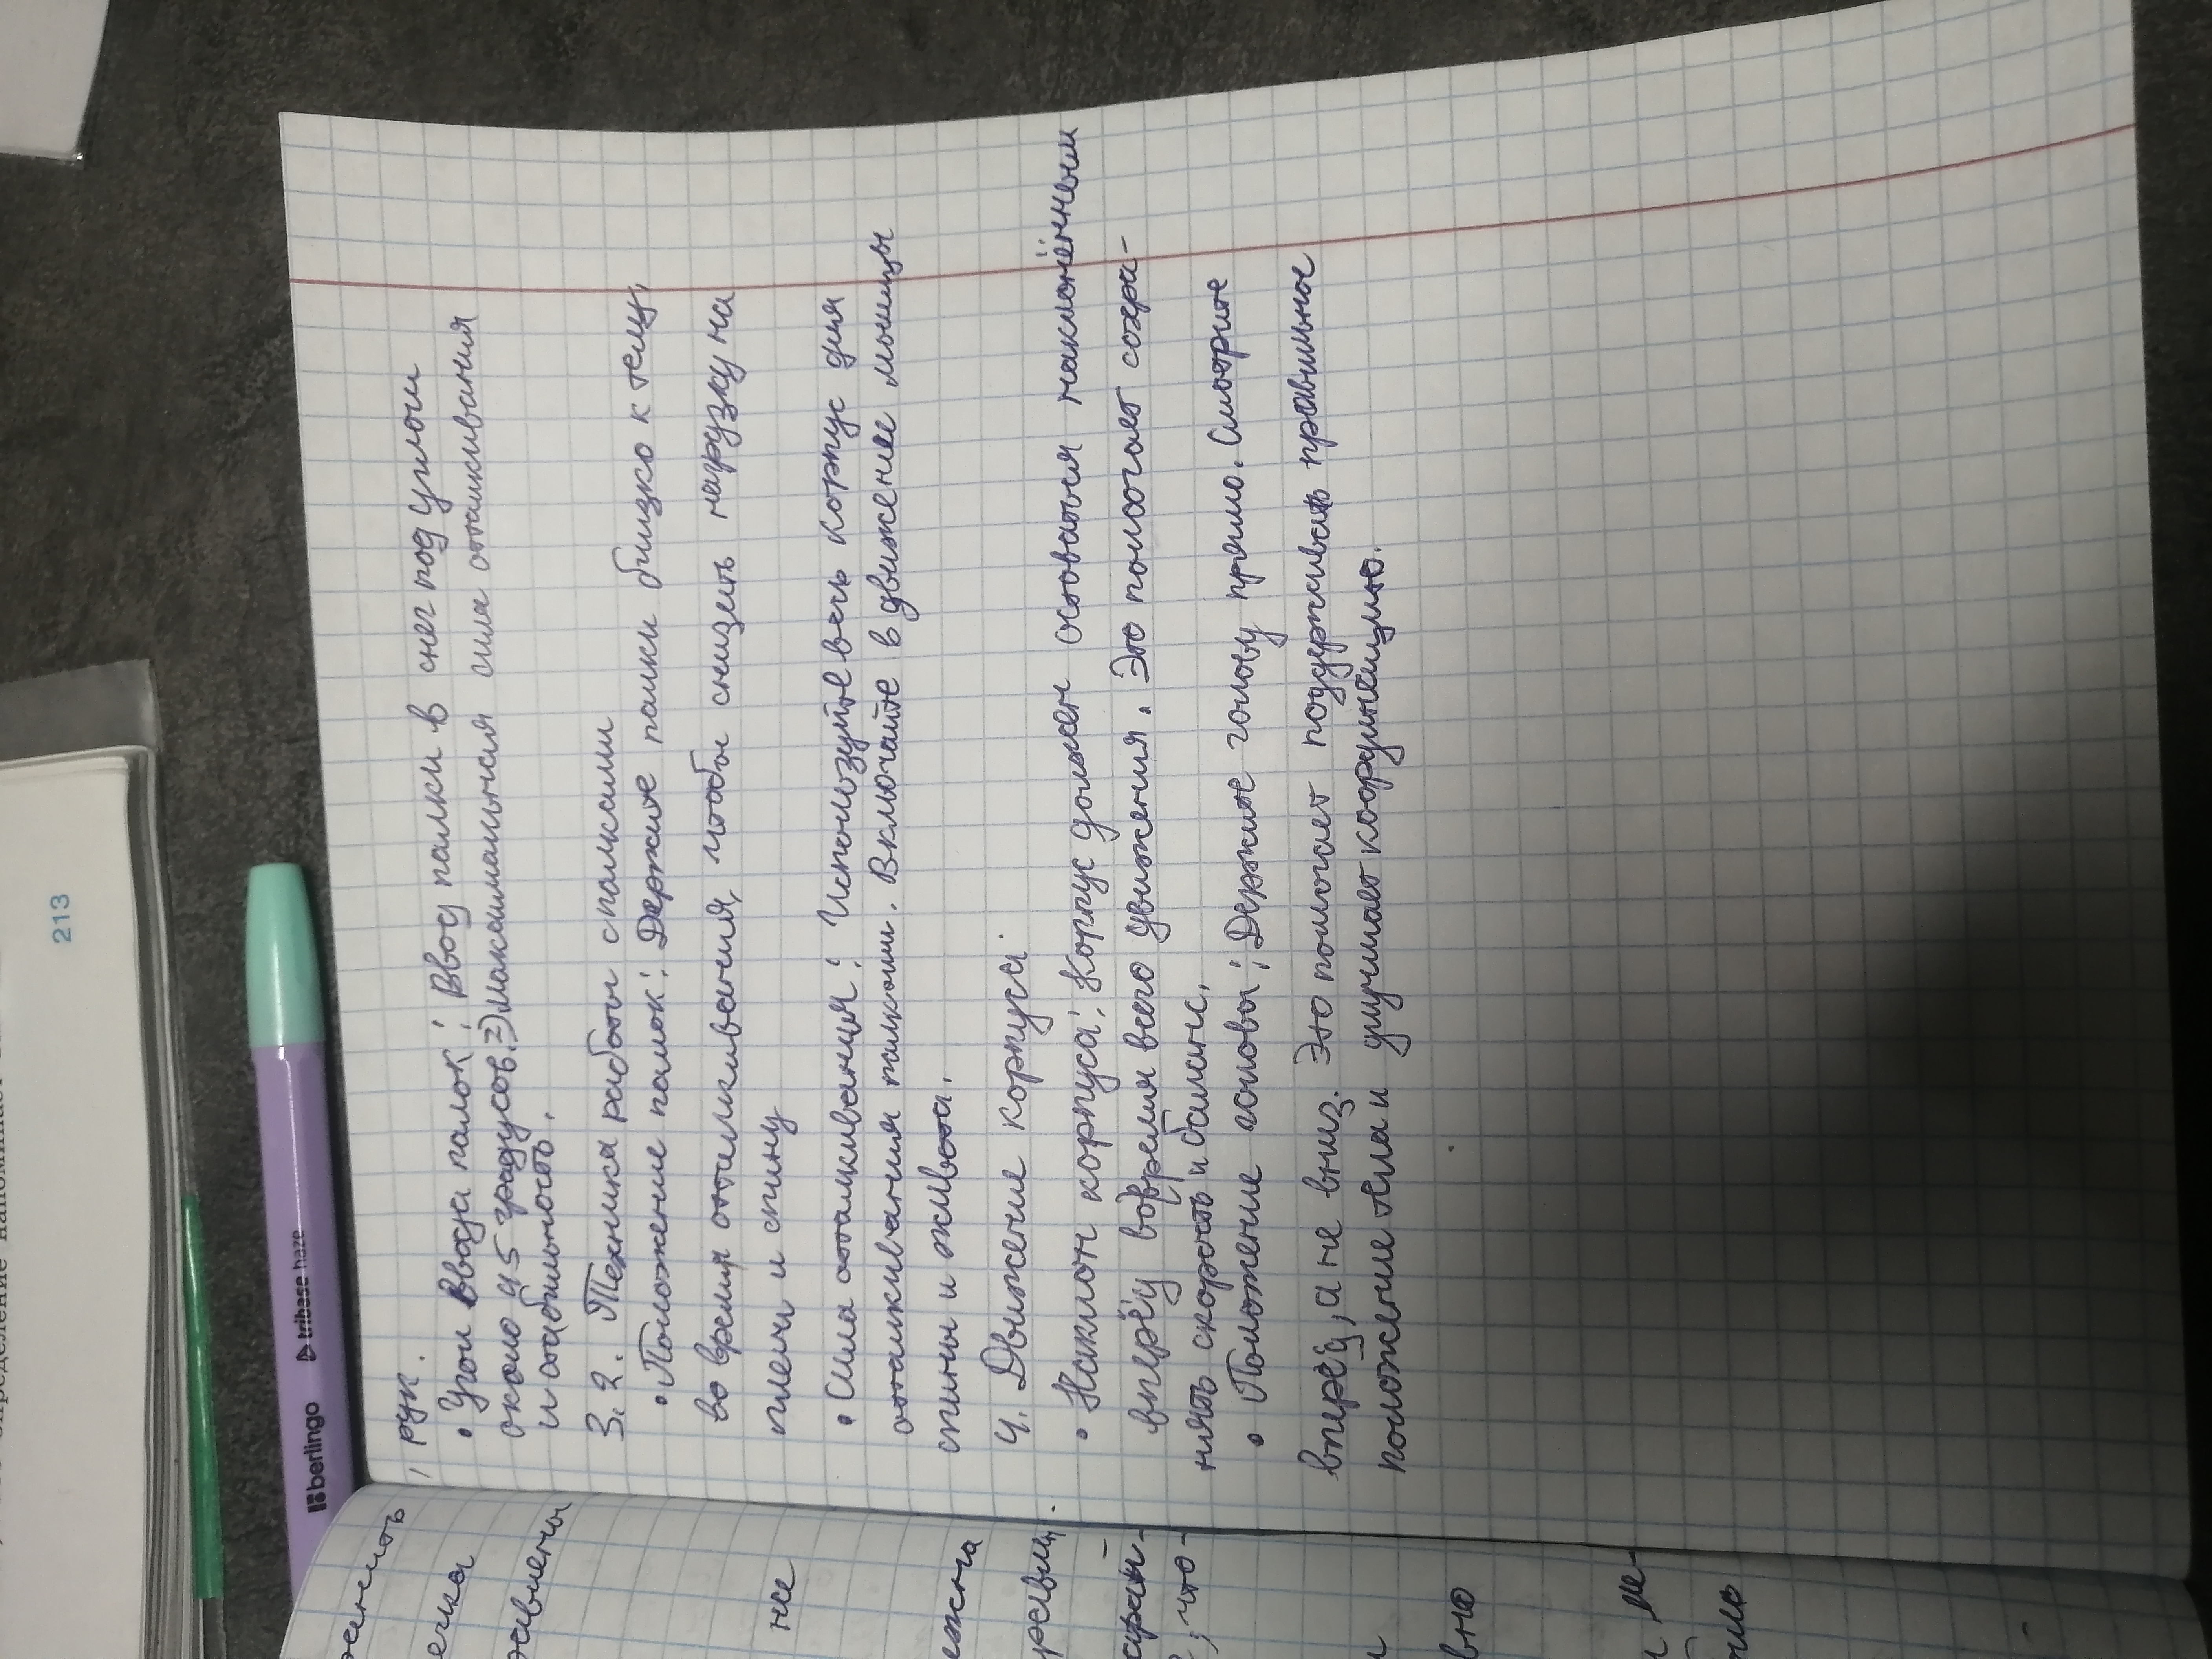 рук.
• Угол ввода палок: Ввод палки в снег под углом
около 45 градусов. => максимальная сила отталкивания
и стабильность.
3.2. Техника работы с палками
• Положение палок: Держите палки близко к телу,
во время отталкивания, чтобы снизить нагрузку на
плечи и спину
• Сила отталкивания: Используйте весь корпус для
отталкивания палками. Включайте в движение мышцы
спины и живота.
4. Движение корпуса
• Наклон корпуса: Корпус должен оставаться наклонённым
вперёд во время всего движения. Это помогает сохра-
нять скорость и баланс.
• Положение головы: Держите голову прямо. Смотрите
вперёд, а не вниз. Это помогает поддерживать правильное
положение тела и улучшает координацию.
не
вно
213
berlingo
tribase haze
определение напоминает